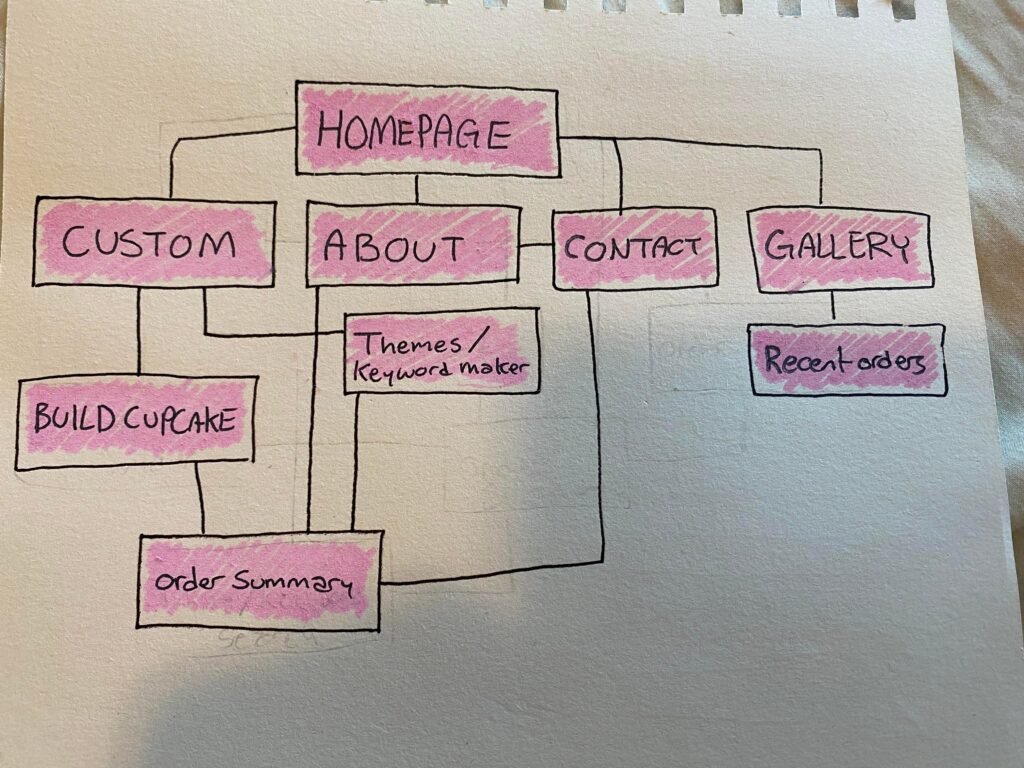 HOMEPAGE
CUSTOM
ABOUT
CONTACT
GALLERY
Themes/
Keyword maker
Recent orders
BUILD CUPCAKE
order Summary